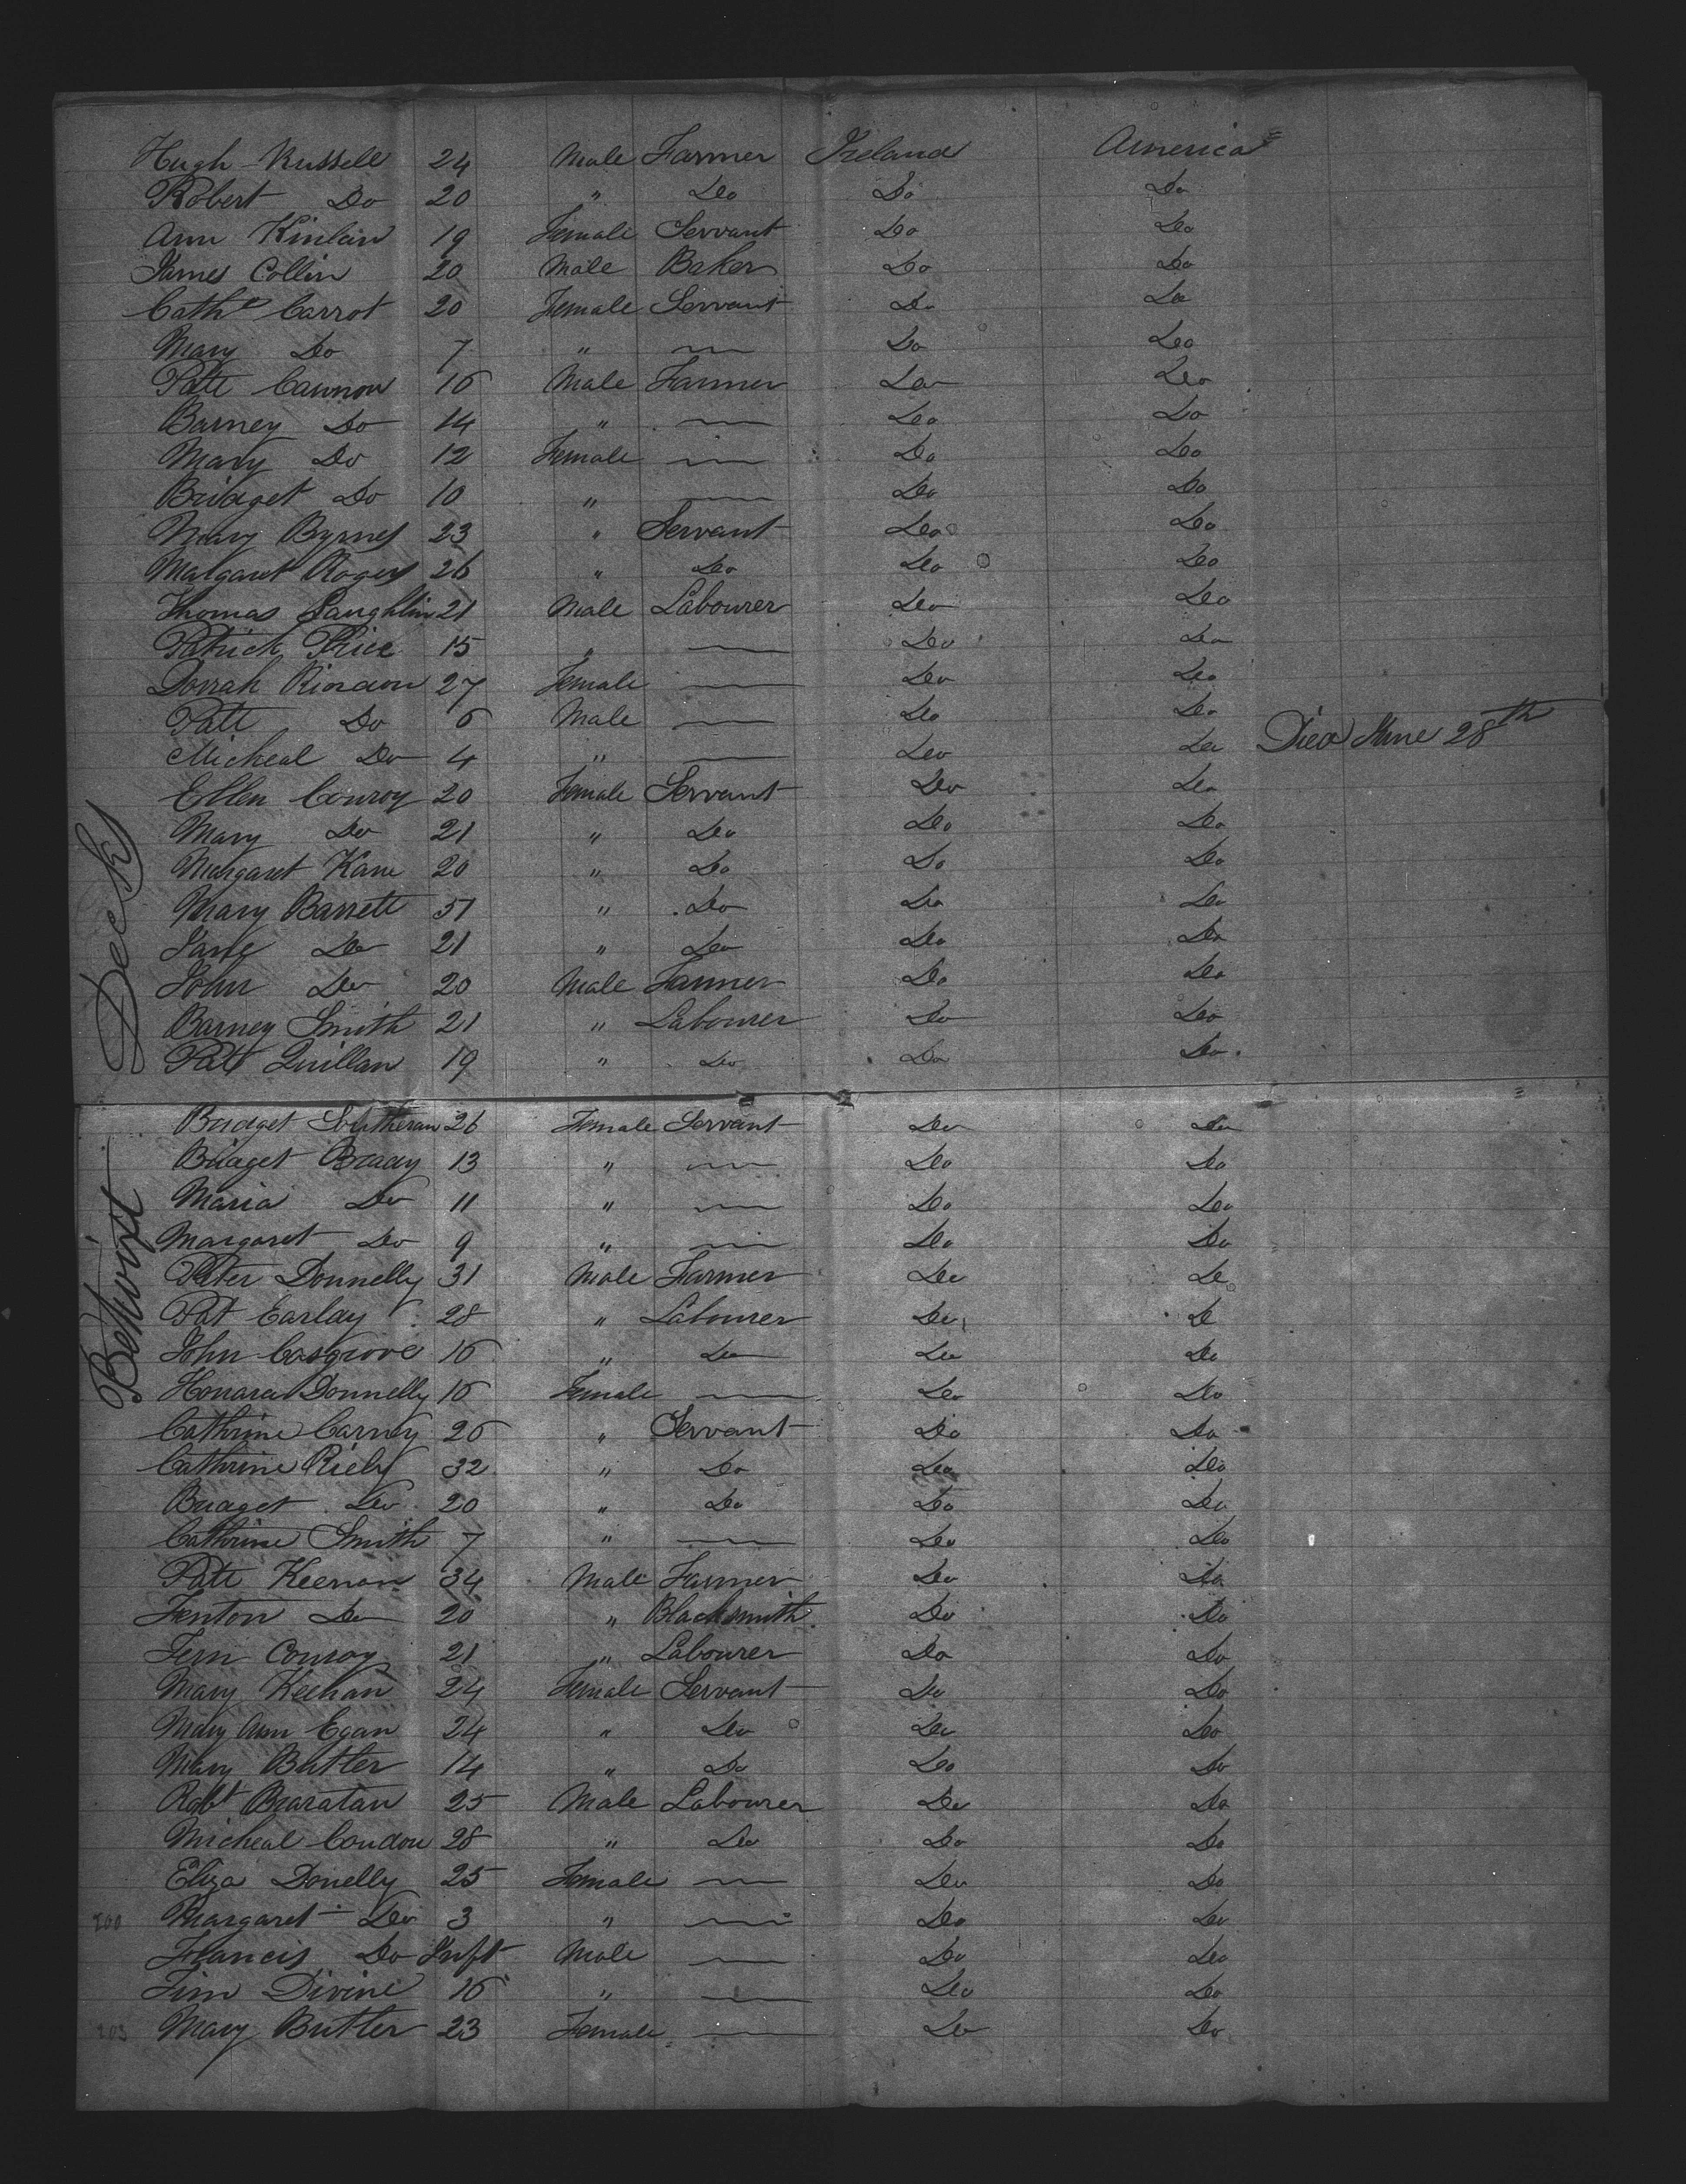 Hugh Russell 24 Male Farmer Ireland America
Robert Do 20 " Do Do Do
Ann Kinlan 19 Female Servant Do Do
James Collin 20 Male Baker Do Do
Cathe Carrot 20 Female Servant Do Do
Mary Do 7 " — Do Do
Patt Cannon 16 Male Farmer Do Do
Barney Do 14 " — Do Do
Mary Do 12 Female — Do Do
Bridget Do 10 " — Do Do
Mary Byrnes 23 " Servant Do Do
Malgaret Rogers 26 " Do Do Do
Thomas Laughlin 21 Male Labourer Do Do
Patrick Price 15 " — Do Do
Dorrah Riordon 27 Female — Do Do
Patt Do 6 Male — Do Do
Micheal Do 4 " — Do Do Died June 28th
Ellen Conroy 20 Female Servant Do Do
Mary Do 21 " Do Do Do
Margaret Kane 20 " Do Do Do
Mary Barrett 51 " Do Do Do
Jane Do 21 " Do Do Do
John Do 20 Male Farmer Do Do
Barney Smith 21 " Labourer Do Do
Patt Quillan 19 " Do Do Do
Betwixt Decks
Bridget Southeran 26 Female Servant Do Do
Bridget Brady 13 " — Do Do
Maria Do 11 " — Do Do
Margaret Do 9 " — Do Do
Peter Donnelly 31 Male Farmer Do Do
Pat Earlay 28 " Labourer Do Do
John Cosgrove 16 " Do Do Do
Honara Donnelly 16 Female — Do Do
Cathrine Carney 26 " Servant Do Do
Cathrine Riely 32 " Do Do Do
Bridget Do 20 " Do Do Do
Cathrine Smith 7 " — Do Do
Patt Keenan 34 Male Farmer Do Do
Fenton Do 20 " Blacksmith Do Do
Conroy 21 " Labourer Do Do
Mary Keehan 24 Female Servant Do Do
Mary Ann Egan 24 " Do Do Do
Mary Butler 14 " Do Do Do
Robt Braratan 25 Male Labourer Do Do
Micheal Condon 28 " Do Do Do
Eliza Donelly 25 Female — Do Do
200 Margaret Do 3 " — Do Do
Francis Do Inft Male — Do Do
Tim Divine 16 " — Do Do
203 Mary Butler 23 Female — Do Do